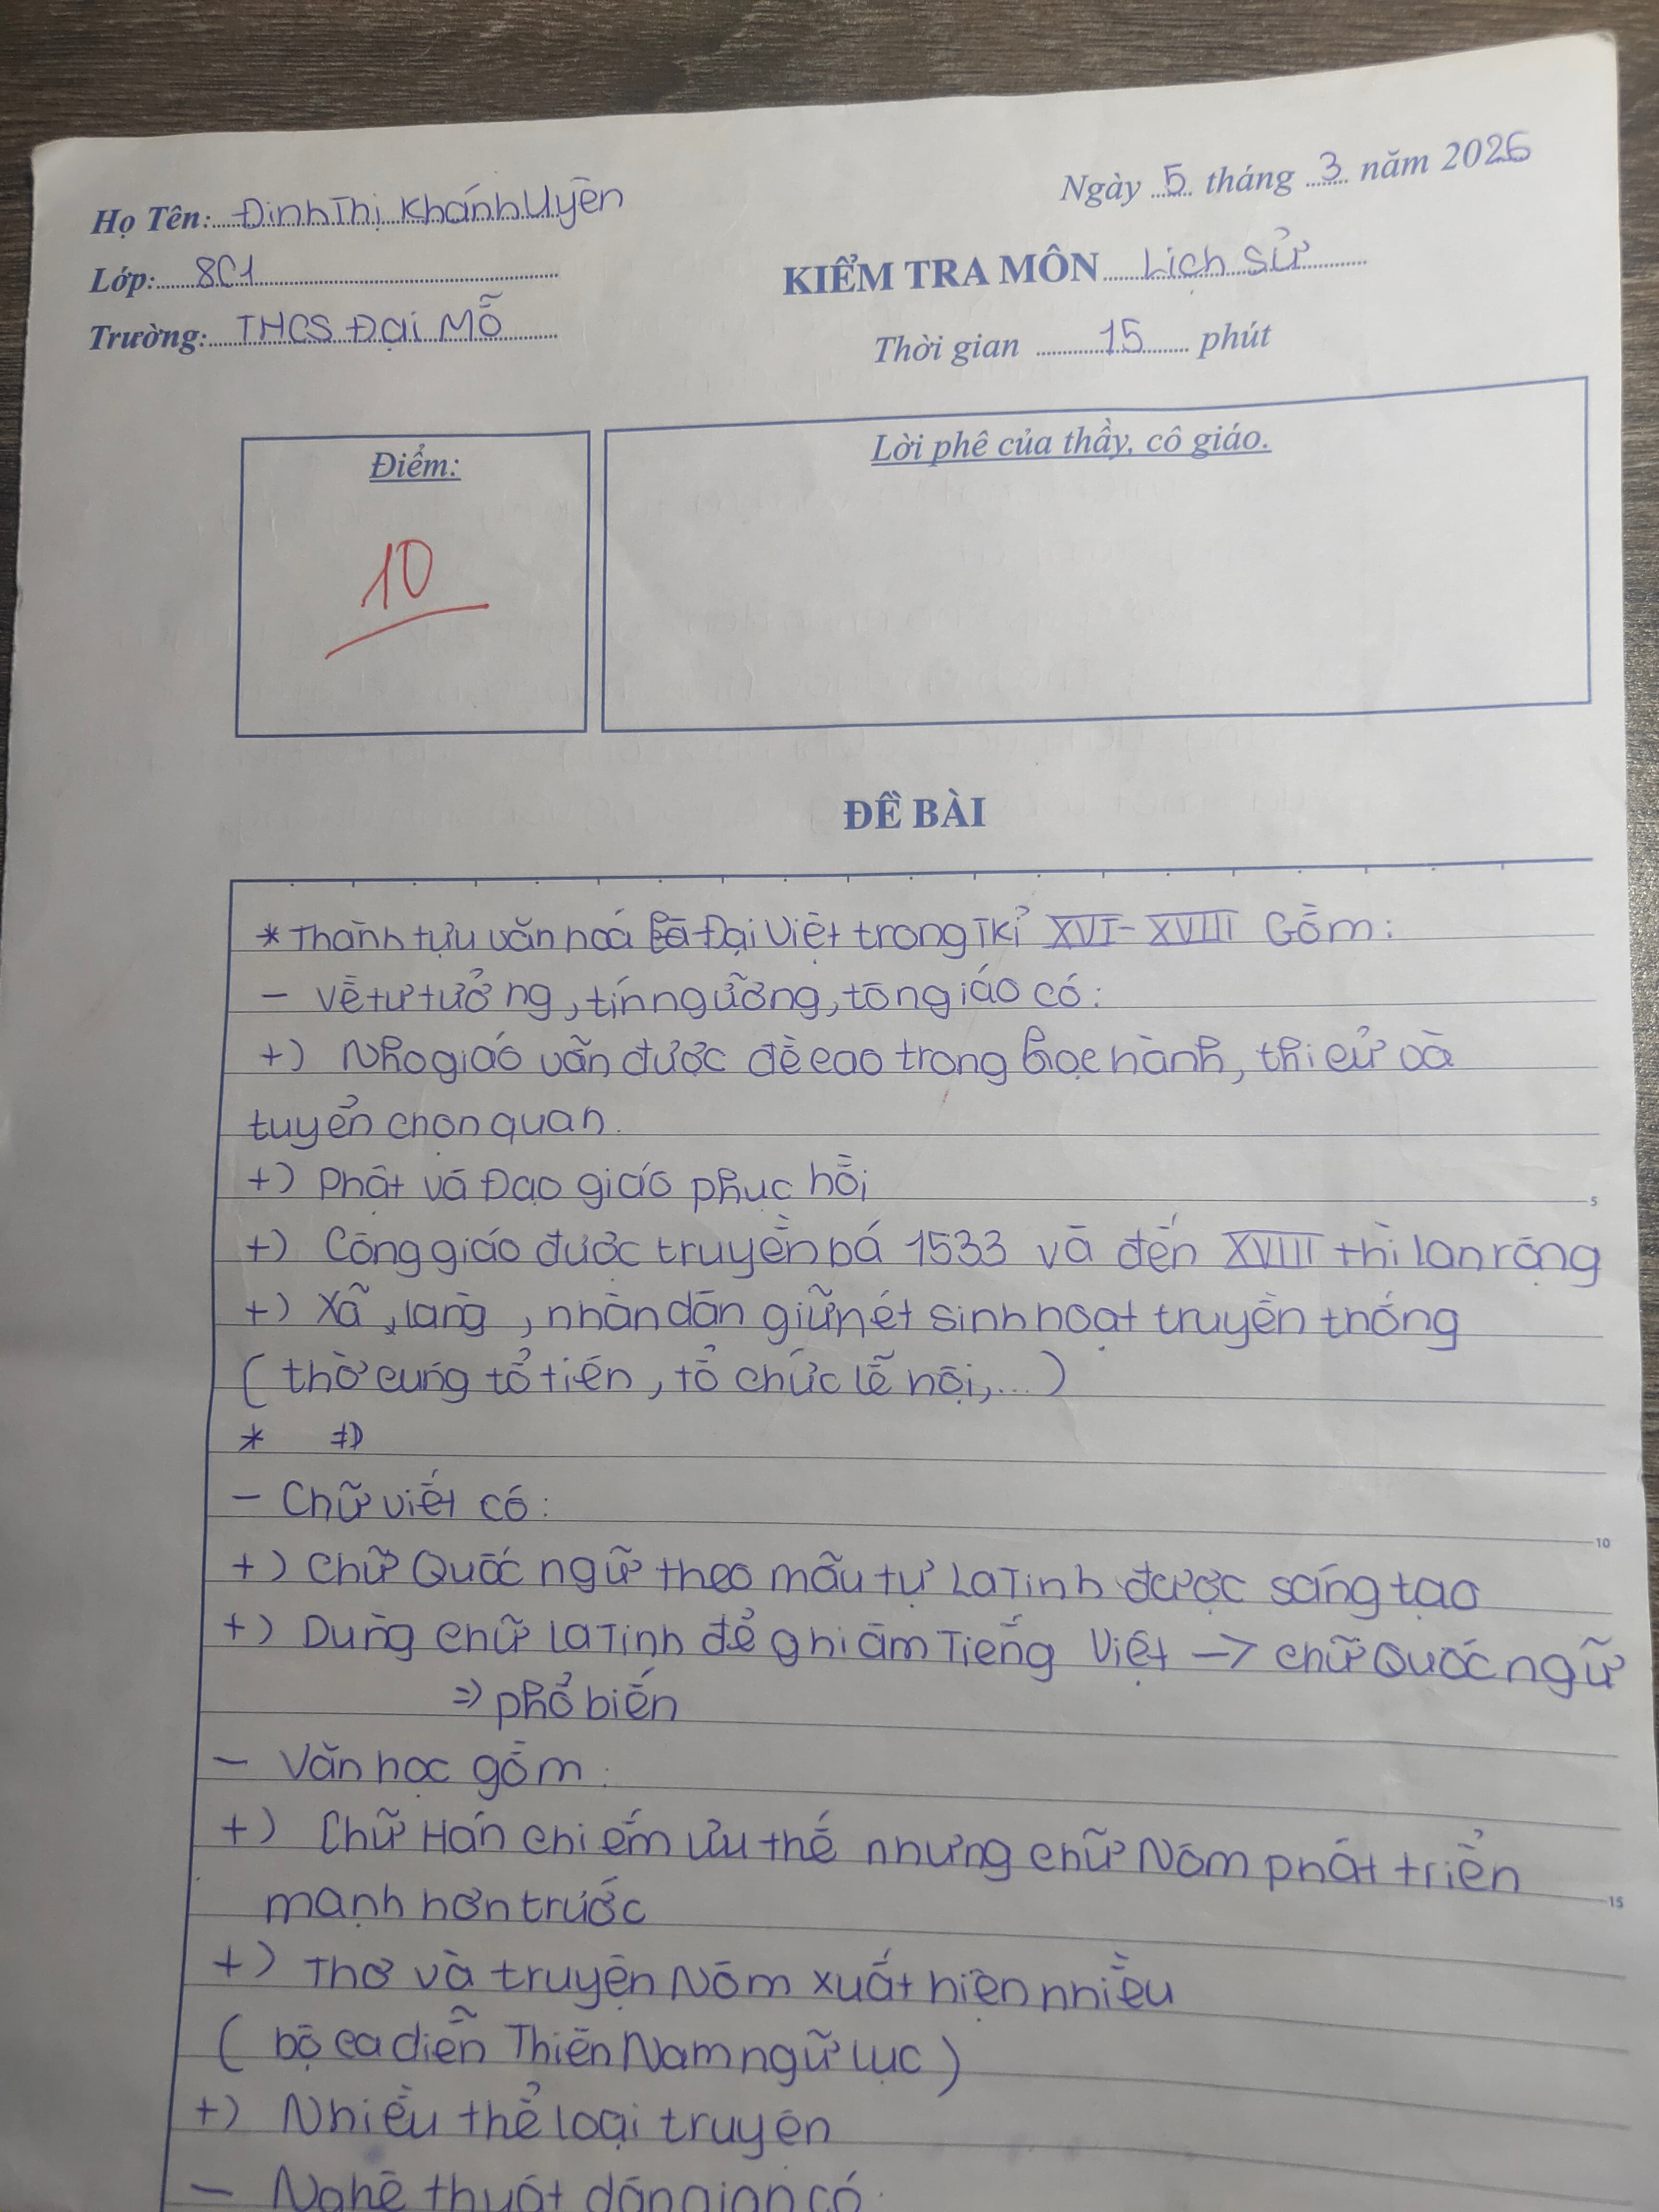 Ngày 5 tháng 3 năm 2026
Họ Tên: Đinh Thị Khánh Uyên
Lớp: 8C1
KIỂM TRA MÔN Lịch sử
Trường: THCS Đại Mỗ
Thời gian 15 phút
Điểm:
10
Lời phê của thầy, cô giáo.
ĐỀ BÀI
* Thành tựu văn hoá Đại Việt trong TKỉ XVI - XVIII Gồm:
- Về tư tưởng, tín ngưỡng, tôn giáo có:
+) Nho giáo vẫn được đề cao trong học hành, thi cử và
tuyển chọn quan.
+) Phật và Đạo giáo phục hồi
5
+) Công giáo được truyền bá 1533 và đến XVIII thì lan rộng
+) Xã, làng, nhân dân giữ nét sinh hoạt truyền thống
(thờ cúng tổ tiên, tổ chức lễ hội,...)
* =>
- Chữ viết có:
10
+) Chữ Quốc ngữ theo mẫu tự La Tinh được sáng tạo
+) Dùng chữ La Tinh để ghi âm Tiếng Việt -> chữ Quốc ngữ
=> phổ biến
- Văn học gồm:
+) Chữ Hán chiếm ưu thế nhưng chữ Nôm phát triển
mạnh hơn trước
15
+) Thơ và truyện Nôm xuất hiện nhiều
(bộ ca diễn Thiên Nam ngữ lục)
+) Nhiều thể loại truyện
- Nghệ thuật dân gian có: